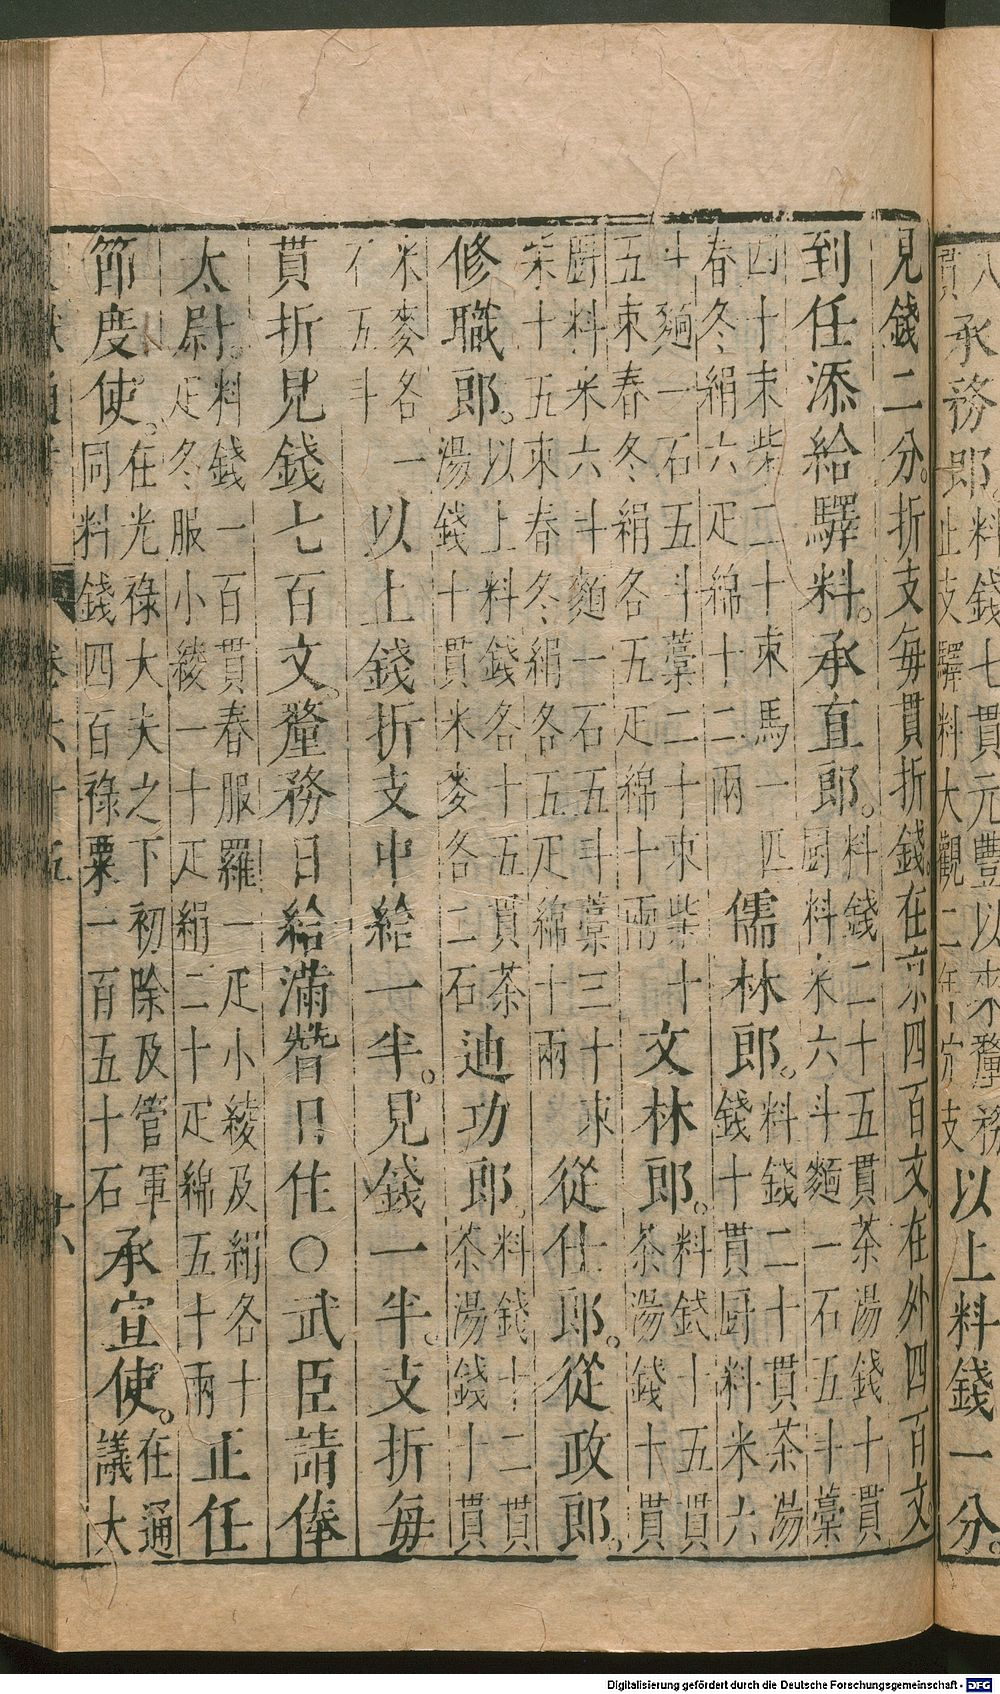 八
貫
承務郎。
料錢七貫元豐以來釐務
止支驛料大觀二年
支
以上料錢一分。
見錢二分。折支每貫折錢。在京四百文。在外四百文。
到任添給驛料。承直郎。
料錢二十五貫茶湯錢十貫
厨料米六斗麵一石五十藁
四十束柴二十束馬一匹
春冬絹六疋綿十二兩
儒林郎。
料錢二十貫茶湯
錢十貫厨料米六
斗麵一石五斗藁二十束柴十
五束春冬絹各五疋綿十兩
文林郎。
料錢十五貫
茶湯錢十貫
厨料米六斗麵一石五斗藁三十束
柴十五束春冬絹各五疋綿十兩
從仕郎。從政郎。
修職郎。
以上料錢各十五貫茶
湯錢十貫米麥各二石
迪功郎。
料錢十二貫
茶湯錢十貫
米麥各一
石五斗
以上錢折支中給一半。見錢一半。支折每
貫折見錢七百文。釐務日給滿替日住〇武臣請俸
太尉。
料錢一百貫春服羅一疋小綾及絹各十
疋冬服小綾一十疋絹二十疋綿五十兩
正任
節度使。
在光祿大夫之下初除及管軍
同料錢四百祿粟一百五十石
承宣使。
在通
議大
Digitalisierung gefördert durch die Deutsche Forschungsgemeinschaft - DFG